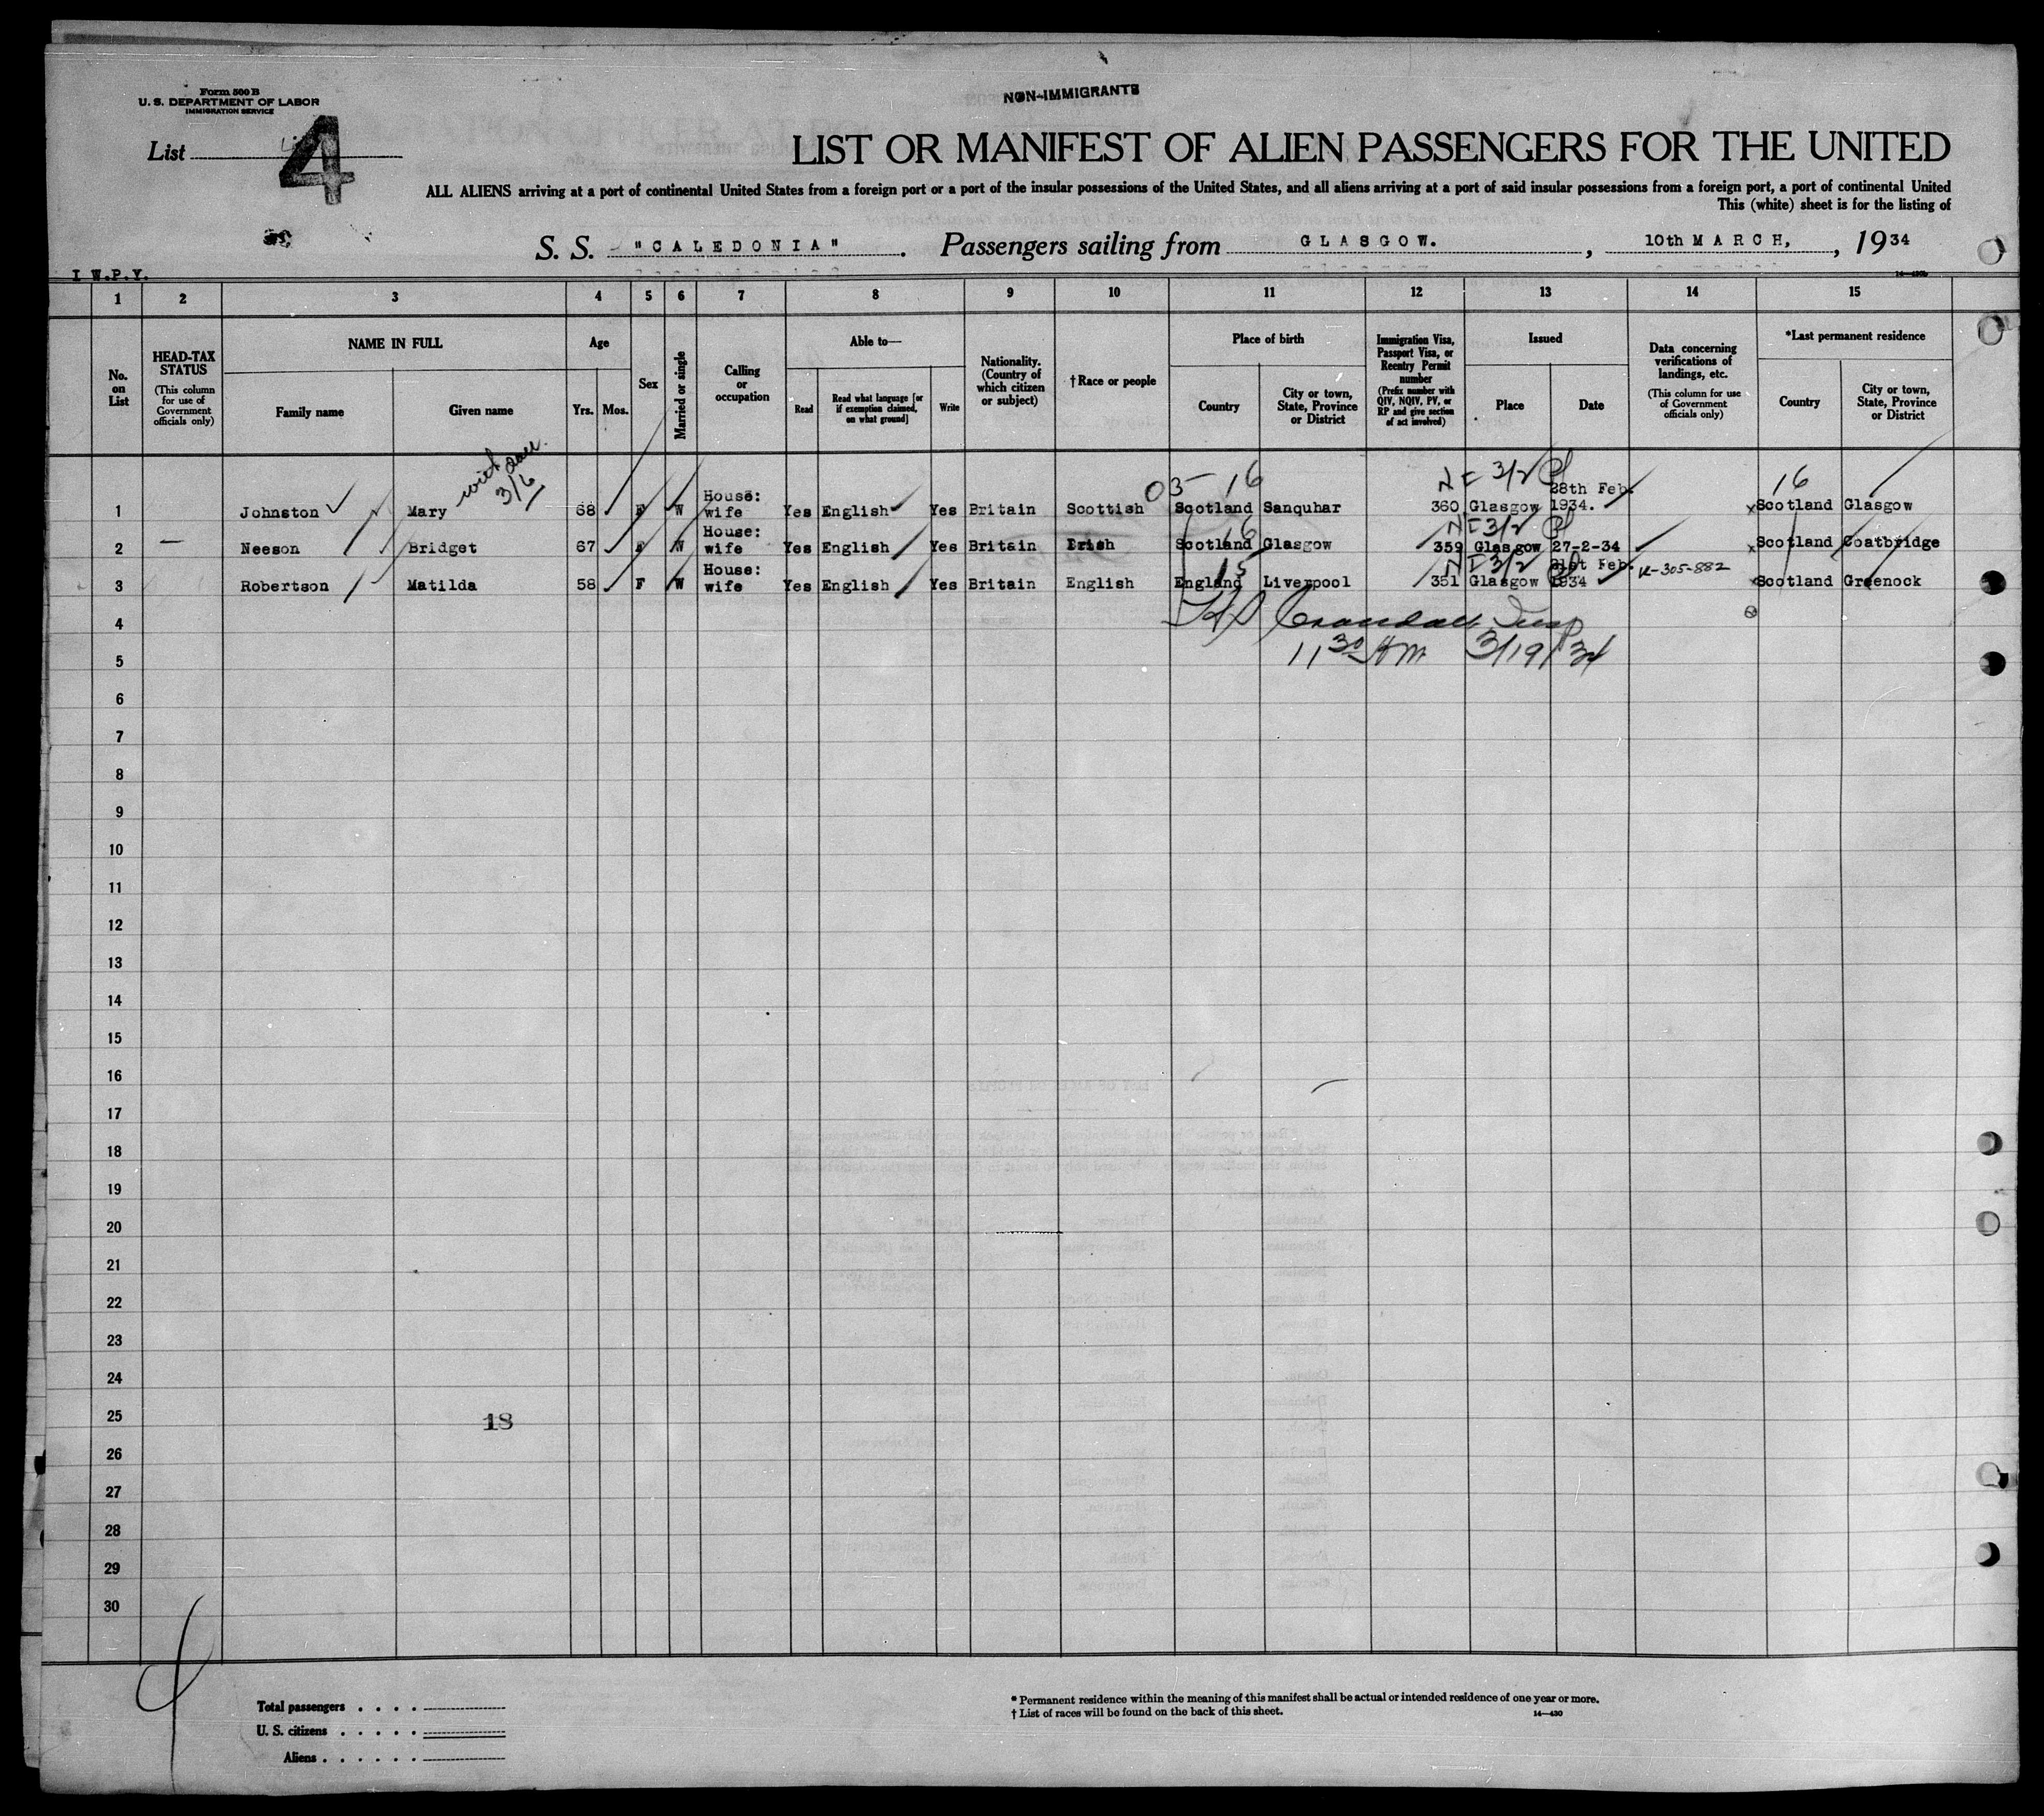 Form 500 B
U. S. DEPARTMENT OF LABOR
IMMIGRATION SERVICE
NON-IMMIGRANTS
List 4
LIST OR MANIFEST OF ALIEN PASSENGERS FOR THE UNITED
ALL ALIENS arriving at a port of continental United States from a foreign port or a port of the insular possessions of the United States, and all aliens arriving at a port of said insular possessions from a foreign port, a port of continental United
This (white) sheet is for the listing of
S. S. "CALEDONIA". Passengers sailing from GLASGOW. , 10th MARCH, , 1934
I W.P.Y.
14—430b
1 2 3 4 5 6 7 8 9 10 11 12 13 14 15
No. on List
HEAD-TAX STATUS
(This column for use of Government officials only)
NAME IN FULL
Family name
Given name
Age
Yrs. Mos.
Sex
Married or single
Calling or occupation
Able to—
Read
Read what language [or if exemption claimed, on what ground]
Write
Nationality. (Country of which citizen or subject)
†Race or people
Place of birth
Country
City or town, State, Province or District
Immigration Visa, Passport Visa, or Reentry Permit number
(Prefix number with QIV, NQIV, PV, or RP and give section of act involved)
Issued
Place
Date
Data concerning verifications of landings, etc.
(This column for use of Government officials only)
*Last permanent residence
Country
City or town, State, Province or District
3/6
03-16 3/2 16
1 Johnston Mary 68 F W House: wife Yes English Yes Britain Scottish Scotland Sanquhar 360 Glasgow 28th Feb. 1934. Scotland Glasgow
16 3/2
2 — Neeson Bridget 67 F W House: wife Yes English Yes Britain Irish Scotland Glasgow 359 Glasgow 27-2-34 Scotland Coatbridge
15 3/2
3 Robertson Matilda 58 F W House: wife Yes English Yes Britain English England Liverpool 351 Glasgow 21st Feb. 1934 R-305-882 Scotland Greenock
4 Crandall Insp
5 11 30 AM 3/19/34
6
7
8
9
10
11
12
13
14
15
16
17
18
19
20
21
22
23
24
25 18
26
27
28
29
30
Total passengers . . . .
U. S. citizens . . . . .
Aliens . . . . . .
* Permanent residence within the meaning of this manifest shall be actual or intended residence of one year or more.
† List of races will be found on the back of this sheet.
14—430